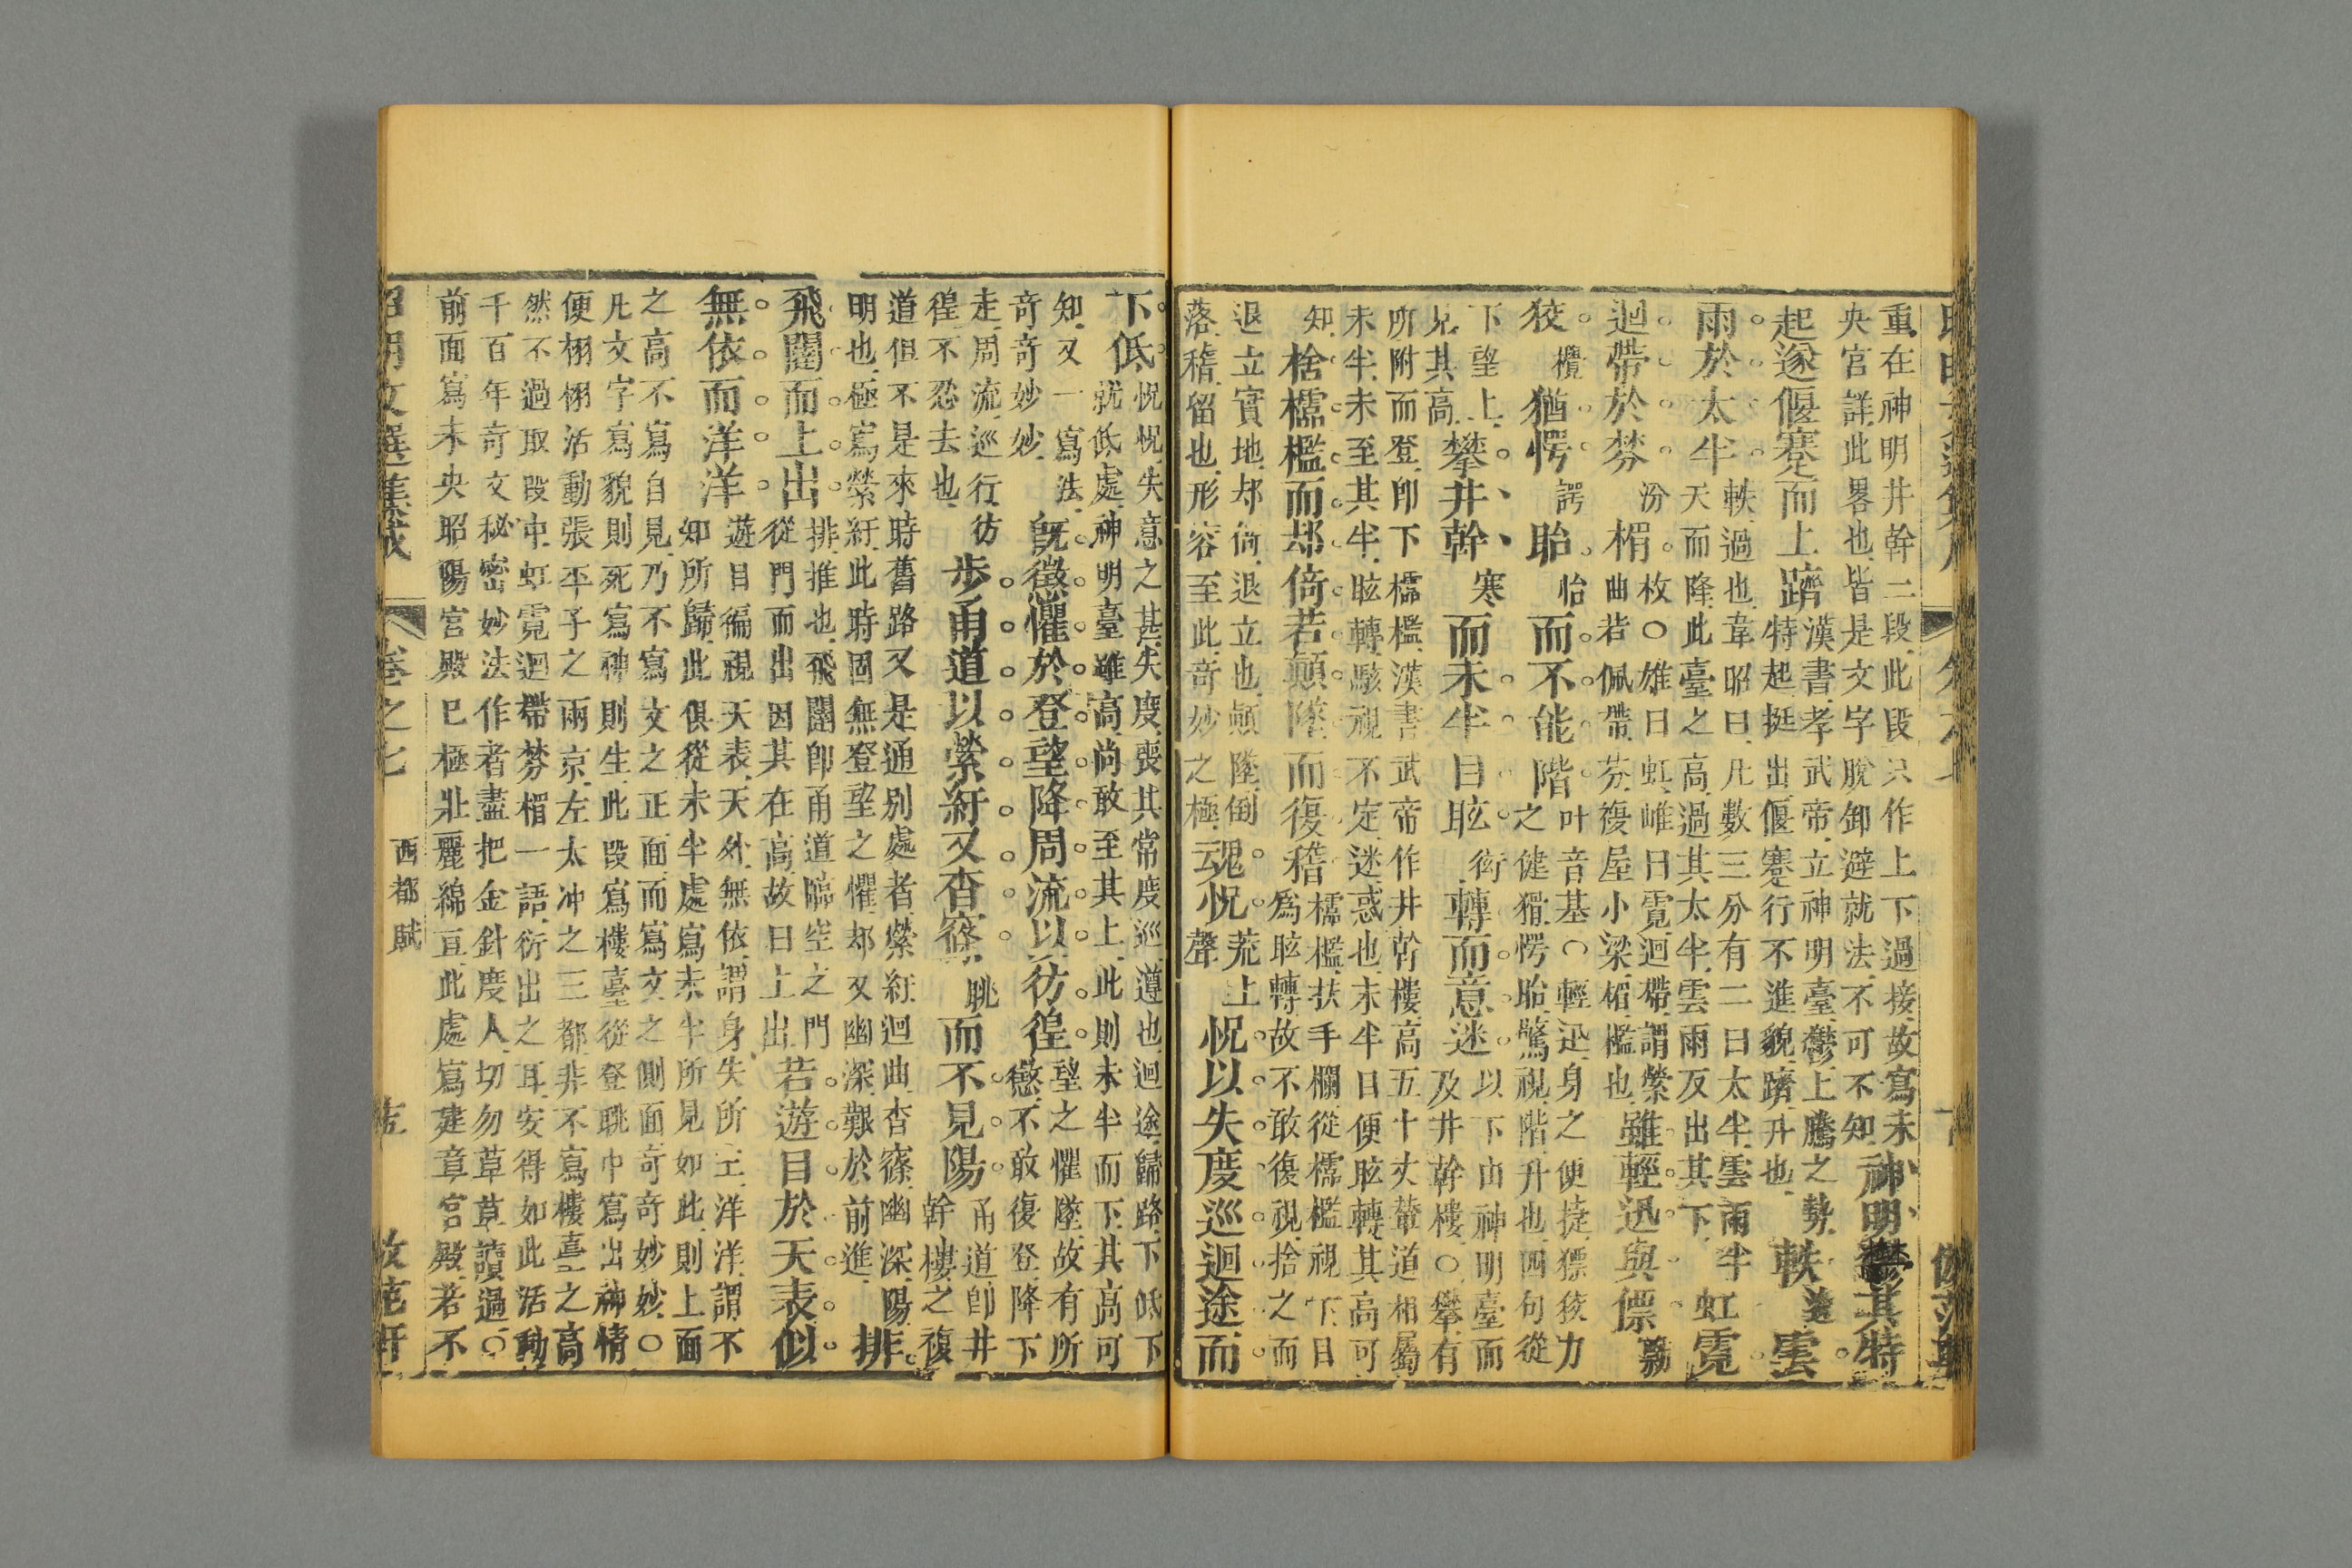 重在神明井幹二段此段只作上下過接故寫未
央宮詳此畧也皆是文字脫卸避就法不可不知
神明鬱其特
起遂偃蹇而上躋
漢書孝武帝立神明臺鬱上騰之勢
特起挺出偃蹇行不進貌躋升也
軼迭雲
雨於太半
軼過也韋昭曰凡數三分有二曰太半雲雨半
天而降此臺之高過其太半雲雨反出其下
虹霓
迴帶於棼汾楣
枚〇雄曰虹雌曰霓迴帶謂縈
曲若佩帶芬複屋小梁楣檻也
雖輕迅與僄剽
狡欖猶愕諤眙怡而不能階
叶音基〇輕迅身之便捷僄狡力
之健猾愕眙驚視階升也四句從
下望上
見其高
攀井幹寒而未半目眩衒轉而意迷
以下由神明臺而
及井幹樓〇攀有
所附而登卽下櫺檻漢書武帝作井幹樓高五十丈輦道相屬
未半未至其半眩轉駭視不定迷惑也未半目便眩轉其高可
知捨櫺檻而却倚若顛墜而復稽
櫺檻扶手欄從櫺檻視下目
爲眩轉故不敢復視捨之而
退立實地却倚退立也顛墜倒
落稽留也形容至此奇妙之極
魂怳荒上聲怳以失度巡迴途而
下低
怳怳失意之甚失度喪其常度巡遵也迴途歸路下低下
就低處神明臺雖高尚敢至其上此則未半而下其高可
知又一寫法
奇奇妙妙
既懲懼於登望降周流以彷徨
望之懼墜故有所
懲不敢復登降下
走周流巡行彷
徨不忍去也
步甬道以縈紆又杳窱眺而不見陽
甬道卽井
幹樓之複
道但不是來時舊路又是通別處者縈紆迴曲杳窱幽深陽
明也極寫縈紆此時固無登望之懼却又幽深艱於前進
排
飛闥而上出
排推也飛闥卽甬道臨空之門
從門而出因其在高故曰上出
若遊目於天表似
無依而洋洋
遊目徧視天表天外無依謂身失所洋洋謂不
知所歸此俱從未半處寫未半所見如此則上面
之高不寫自見乃不寫文之正面而寫文之側面奇奇妙妙〇
凡文字寫貌則死寫神則生此段寫樓臺從登眺中寫出神情
便栩栩活動張平子之兩京左太冲之三都非不寫樓臺之高
然不過取段中虹霓迴帶棼楣一語衍出之耳安得如此活動
千百年奇文秘密妙法作者盡把金針度人切勿草草讀過〇
前面寫未央昭陽宮殿已極壯麗綿亘此處寫建章宮殿若不
昭明文選集成 卷之七 西都賦